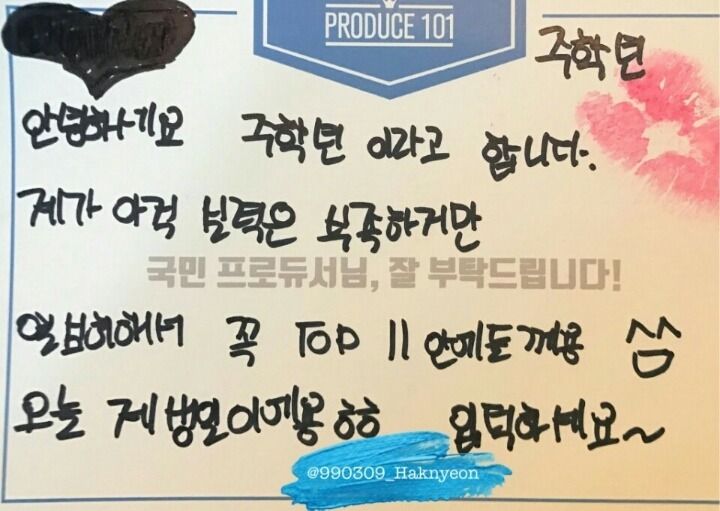 PRODUCE 101
주학년
안녕하세요 주학년 이라고 합니다.
제가 아직 실력은 부족하지만
국민 프로듀서님, 잘 부탁드립니다!
열심히해서 꼭 TOP 11 안에들께용 ^^
오늘 제 생일이에용 ㅎㅎ 입덕하세요~
@990309_Haknyeon